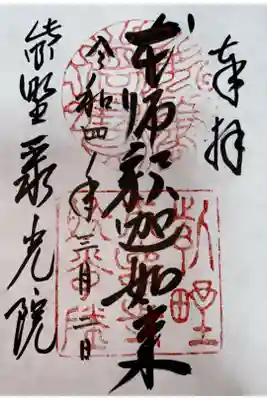 奉拝
本師釈迦如来
令和四年三月二日
紫野聚光院